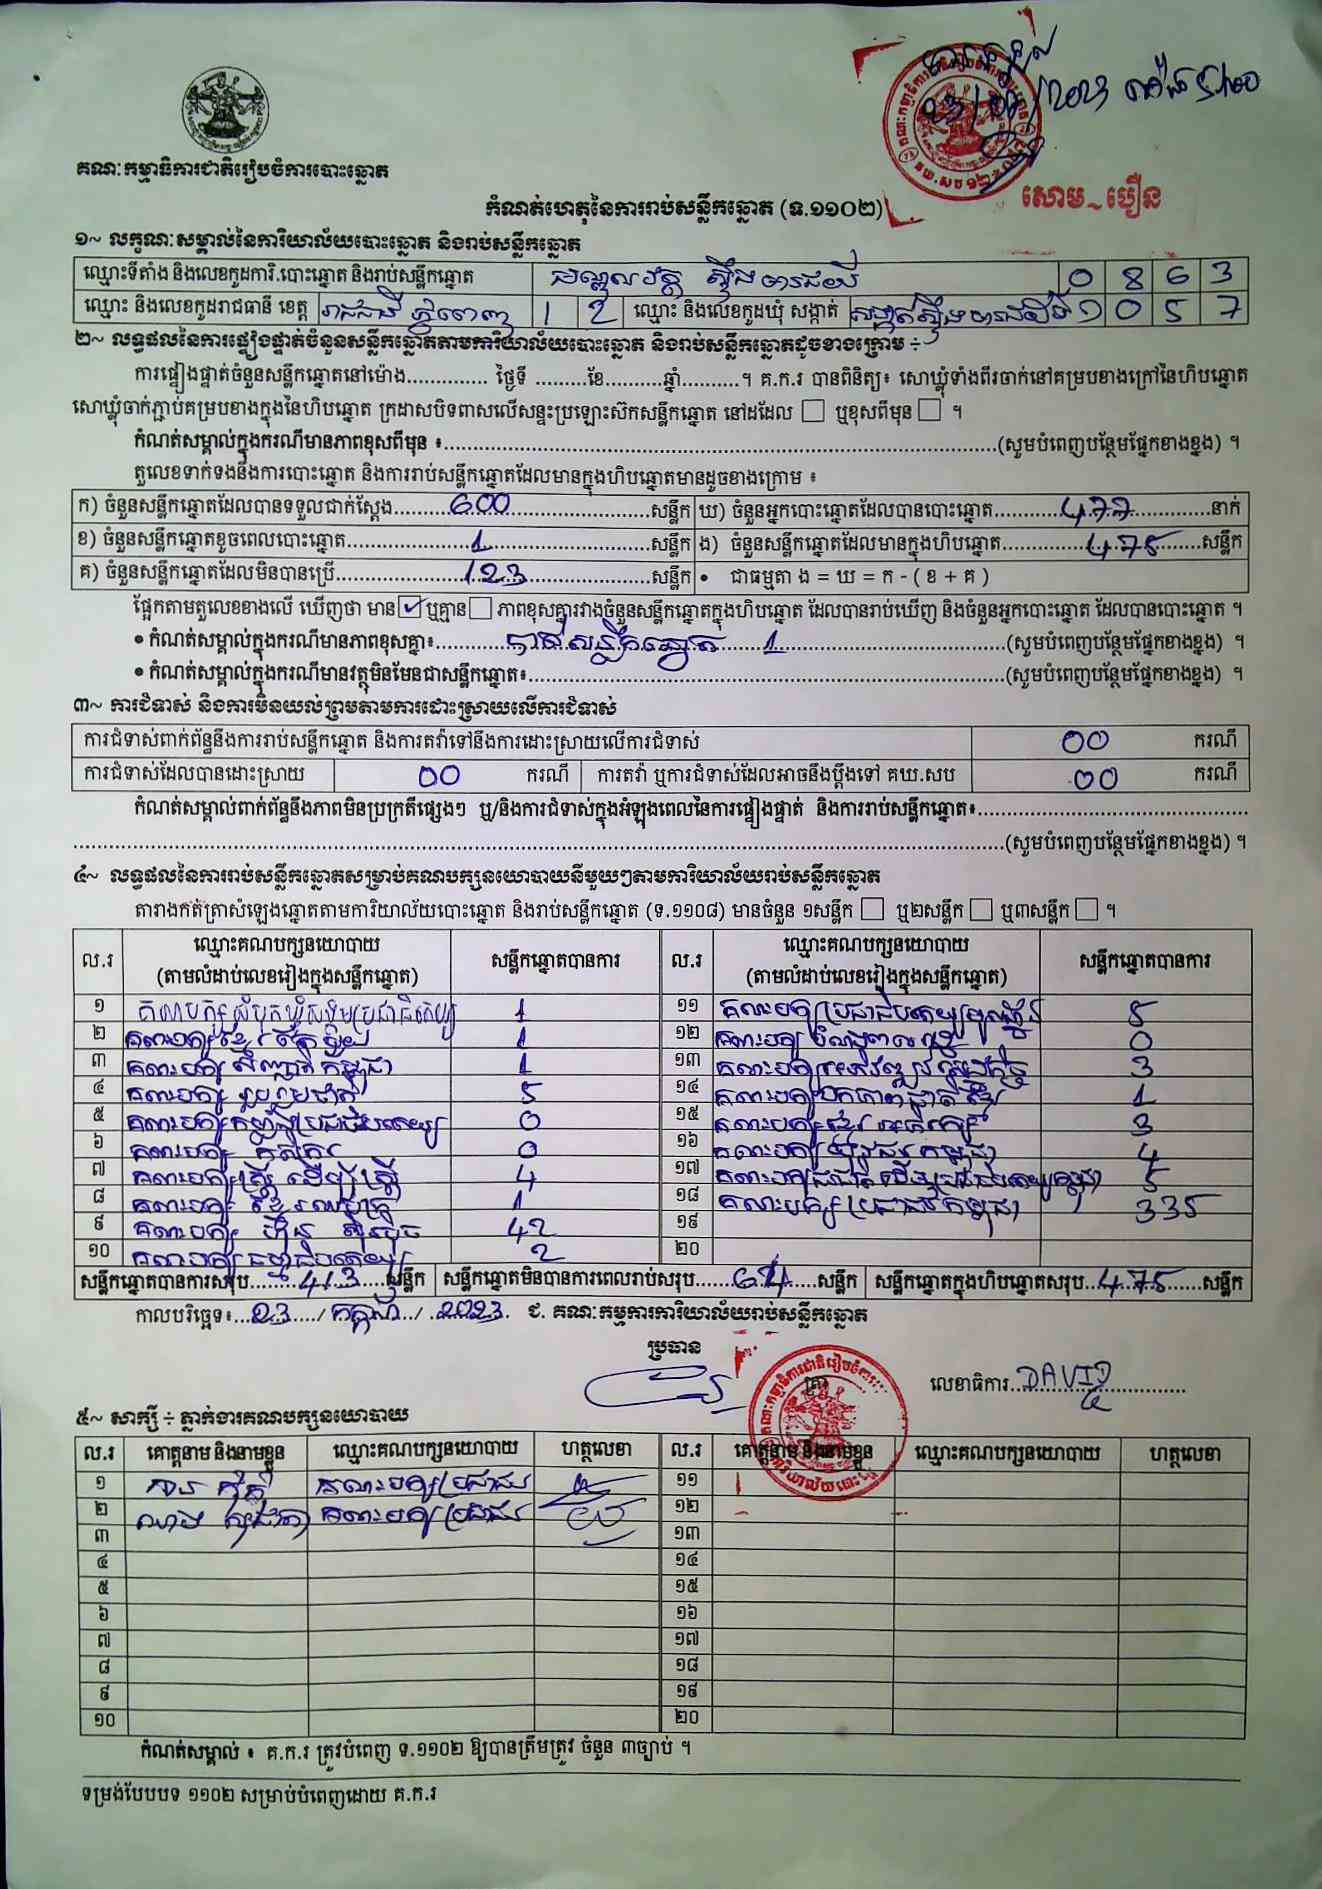 គណៈកម្មាធិការជាតិរៀបចំការបោះឆ្នោត
កំណត់ហេតុនៃការរាប់សន្លឹកឆ្នោត (ទ.១១០២)
សោម~បឿន
១~ លក្ខណៈសម្គាល់នៃការិយាល័យបោះឆ្នោត និងរាប់សន្លឹកឆ្នោត
ឈ្មោះទីតាំង និងលេខកូដការិ.បោះឆ្នោត និងរាប់សន្លឹកឆ្នោត 0 8 6 3
ឈ្មោះ និងលេខកូដរាជធានី ខេត្ត រាជធានី ភ្នំពេញ 1 2 ឈ្មោះ និងលេខកូដឃុំ សង្កាត់ សង្កាត់ស្ទឹងមានជ័យទី១ 1 0 5 7
២~ លទ្ធផលនៃការផ្ទៀងផ្ទាត់ចំនួនសន្លឹកឆ្នោតតាមការិយាល័យបោះឆ្នោត និងរាប់សន្លឹកឆ្នោតដូចខាងក្រោម ÷
ការផ្ទៀងផ្ទាត់ចំនួនសន្លឹកឆ្នោតនៅម៉ោង.............. ថ្ងៃទី .........ខែ..........ឆ្នាំ..........។ គ.ក.រ បានពិនិត្យ៖ សោឃ្លុំទាំងពីរចាក់នៅគម្របខាងក្រៅនៃហិបឆ្នោត
សោឃ្លុំចាក់ភ្ជាប់គម្របខាងក្នុងនៃហិបឆ្នោត ក្រដាសបិទពាសលើសន្ទះប្រឡោះស៊កសន្លឹកឆ្នោត នៅដដែល ☐ ឬខុសពីមុន ☐ ។
កំណត់សម្គាល់ក្នុងករណីមានភាពខុសពីមុន ៖..............................(សូមបំពេញបន្ថែមផ្នែកខាងខ្នង) ។
តួលេខទាក់ទងនឹងការបោះឆ្នោត និងការរាប់សន្លឹកឆ្នោតដែលមានក្នុងហិបឆ្នោតមានដូចខាងក្រោម ៖
ក) ចំនួនសន្លឹកឆ្នោតដែលបានទទួលជាក់ស្តែង.......600.......សន្លឹក ឃ) ចំនួនអ្នកបោះឆ្នោតដែលបានបោះឆ្នោត.......477.......នាក់
ខ) ចំនួនសន្លឹកឆ្នោតខូចពេលបោះឆ្នោត.......1.......សន្លឹក ង) ចំនួនសន្លឹកឆ្នោតដែលមានក្នុងហិបឆ្នោត.......475.......សន្លឹក
គ) ចំនួនសន្លឹកឆ្នោតដែលមិនបានប្រើ.......123.......សន្លឹក • ជាធម្មតា ង = ឃ = ក - ( ខ + គ )
ផ្អែកតាមតួលេខខាងលើ ឃើញថា មាន ☑ ឬគ្មាន ☐ ភាពខុសគ្នារវាងចំនួនសន្លឹកឆ្នោតក្នុងហិបឆ្នោត ដែលបានរាប់ឃើញ និងចំនួនអ្នកបោះឆ្នោត ដែលបានបោះឆ្នោត ។
• កំណត់សម្គាល់ក្នុងករណីមានភាពខុសគ្នា៖.......បាត់សន្លឹកឆ្នោត.......1.......(សូមបំពេញបន្ថែមផ្នែកខាងខ្នង) ។
• កំណត់សម្គាល់ក្នុងករណីមានវត្ថុមិនមែនជាសន្លឹកឆ្នោត៖..............................(សូមបំពេញបន្ថែមផ្នែកខាងខ្នង) ។
៣~ ការជំទាស់ និងការមិនយល់ព្រមតាមការដោះស្រាយលើការជំទាស់
ការជំទាស់ពាក់ព័ន្ធនឹងការរាប់សន្លឹកឆ្នោត និងការតវ៉ាទៅនឹងការដោះស្រាយលើការជំទាស់ 00 ករណី
ការជំទាស់ដែលបានដោះស្រាយ 00 ករណី ការតវ៉ា ឬការជំទាស់ដែលអាចនឹងប្តឹងទៅ គឃ.សប 00 ករណី
កំណត់សម្គាល់ពាក់ព័ន្ធនឹងភាពមិនប្រក្រតីផ្សេងៗ ឬ/និងការជំទាស់ក្នុងអំឡុងពេលនៃការផ្ទៀងផ្ទាត់ និងការរាប់សន្លឹកឆ្នោត៖..............................
..............................(សូមបំពេញបន្ថែមផ្នែកខាងខ្នង) ។
៤~ លទ្ធផលនៃការរាប់សន្លឹកឆ្នោតសម្រាប់គណបក្សនយោបាយនីមួយៗតាមការិយាល័យរាប់សន្លឹកឆ្នោត
តារាងកត់ត្រាសំឡេងឆ្នោតតាមការិយាល័យបោះឆ្នោត និងរាប់សន្លឹកឆ្នោត (ទ.១១០៨) មានចំនួន ១សន្លឹក ☐ ឬ២សន្លឹក ☐ ឬ៣សន្លឹក ☐ ។
ល.រ ឈ្មោះគណបក្សនយោបាយ (តាមលំដាប់លេខរៀងក្នុងសន្លឹកឆ្នោត) សន្លឹកឆ្នោតបានការ ល.រ ឈ្មោះគណបក្សនយោបាយ (តាមលំដាប់លេខរៀងក្នុងសន្លឹកឆ្នោត) សន្លឹកឆ្នោតបានការ
១ គណបក្សសំបុកឃ្មុំសង្គមប្រជាធិបតេយ្យ 1 ១១ 5
២ 1 ១២ 0
៣ 1 ១៣ 3
៤ គណបក្ស រួបរួមជាតិ 5 ១៤ គណបក្ស ឯកភាពជាតិខ្មែរ 1
៥ គណបក្សកម្លាំងប្រជាធិបតេយ្យ 0 ១៥ គណបក្ស ខ្មែរអភិរក្ស 3
៦ គណបក្ស កសិករ 0 ១៦ គណបក្ស យុវជនកម្ពុជា 4
៧ គណបក្សស្ត្រី ដើម្បីស្ត្រី 4 ១៧ 5
៨ 1 ១៨ គណបក្សប្រជាជនកម្ពុជា 335
៩ គណបក្ស ហ៊្វុនស៊ិនប៉ិច 42 ១៩
១០ គណបក្ស ធម្មាធិបតេយ្យ 2 ២០
សន្លឹកឆ្នោតបានការសរុប.......413.......សន្លឹក សន្លឹកឆ្នោតមិនបានការពេលរាប់សរុប.......61.......សន្លឹក សន្លឹកឆ្នោតក្នុងហិបឆ្នោតសរុប.......475.......សន្លឹក
កាលបរិច្ឆេទ៖...23.../ កក្កដា / .2023. ជ. គណៈកម្មការការិយាល័យរាប់សន្លឹកឆ្នោត
ប្រធាន
លេខាធិការ...DAVID...
៥~ សាក្សី ÷ ភ្នាក់ងារគណបក្សនយោបាយ
ល.រ គោត្តនាម និងនាមខ្លួន ឈ្មោះគណបក្សនយោបាយ ហត្ថលេខា ល.រ គោត្តនាម និងនាមខ្លួន ឈ្មោះគណបក្សនយោបាយ ហត្ថលេខា
១ គណបក្សប្រជាជន ១១
២ គណបក្សប្រជាជន ១២
៣ ១៣
៤ ១៤
៥ ១៥
៦ ១៦
៧ ១៧
៨ ១៨
៩ ១៩
១០ ២០
កំណត់សម្គាល់ ៖ គ.ក.រ ត្រូវបំពេញ ទ.១១០២ ឱ្យបានត្រឹមត្រូវ ចំនួន ៣ច្បាប់ ។
ទម្រង់បែបបទ ១១០២ សម្រាប់បំពេញដោយ គ.ក.រ